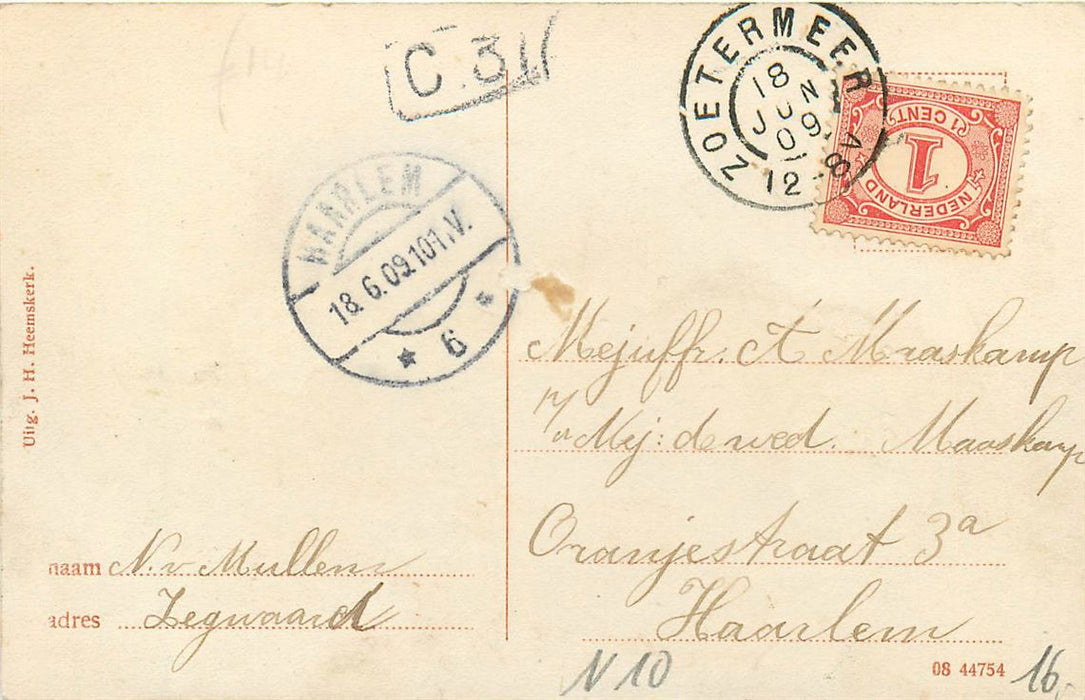 C. 31
ZOETERMEER
18 JUN 09
12-8 V
1 CENT
1
NEDERLAND
HAARLEM
18.6.09.10-1.V.
6
Uitg. J. H. Heemskerk.
Mejuffr. A Maaskamp
Mej: de wed. Maaskamp
Oranjestraat 3a
Haarlem
naam N. v Mullem
adres Zegwaard
N 10
08 44754
16.